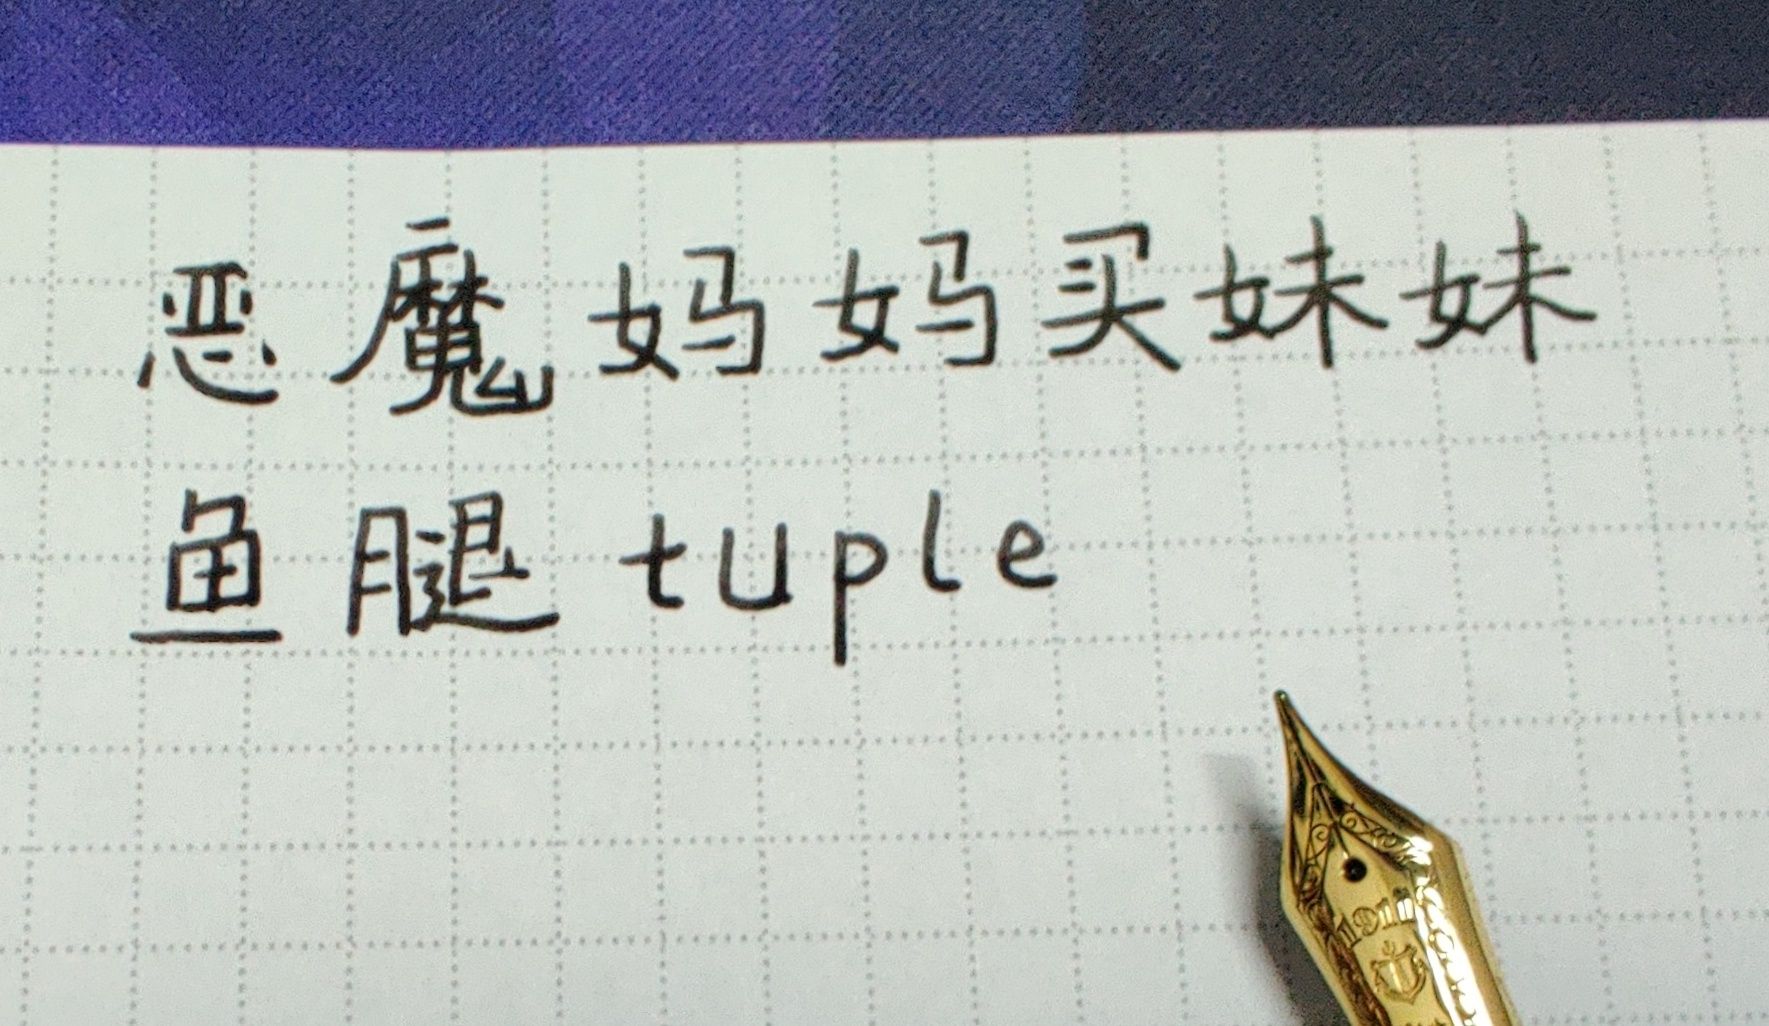 恶魔妈妈买妹妹
鱼腿 tuple
1911